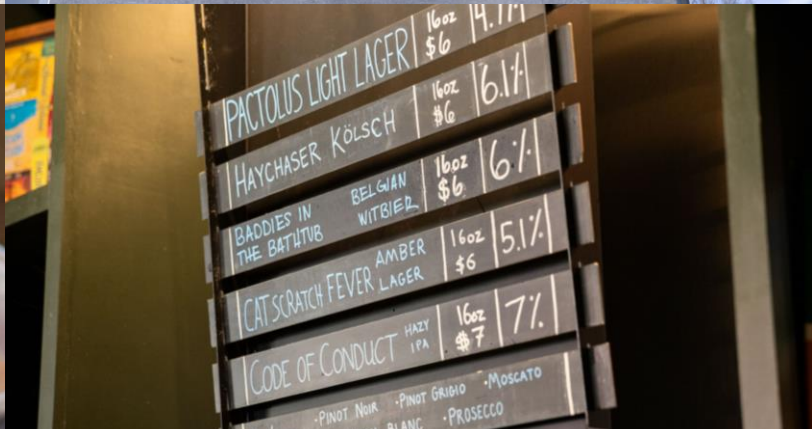 PACTOLUS LIGHT LAGER 16oz $6
HAYCHASER KÖLSCH 16oz $6 6.1%
BADDIES IN THE BATHTUB BELGIAN WITBIER 16oz $6 6%
CAT SCRATCH FEVER AMBER LAGER 16oz $6 5.1%
CODE OF CONDUCT HAZY IPA 16oz $7 7%
·PINOT NOIR ·PINOT GRIGIO ·MOSCATO
BLANC ·PROSECCO